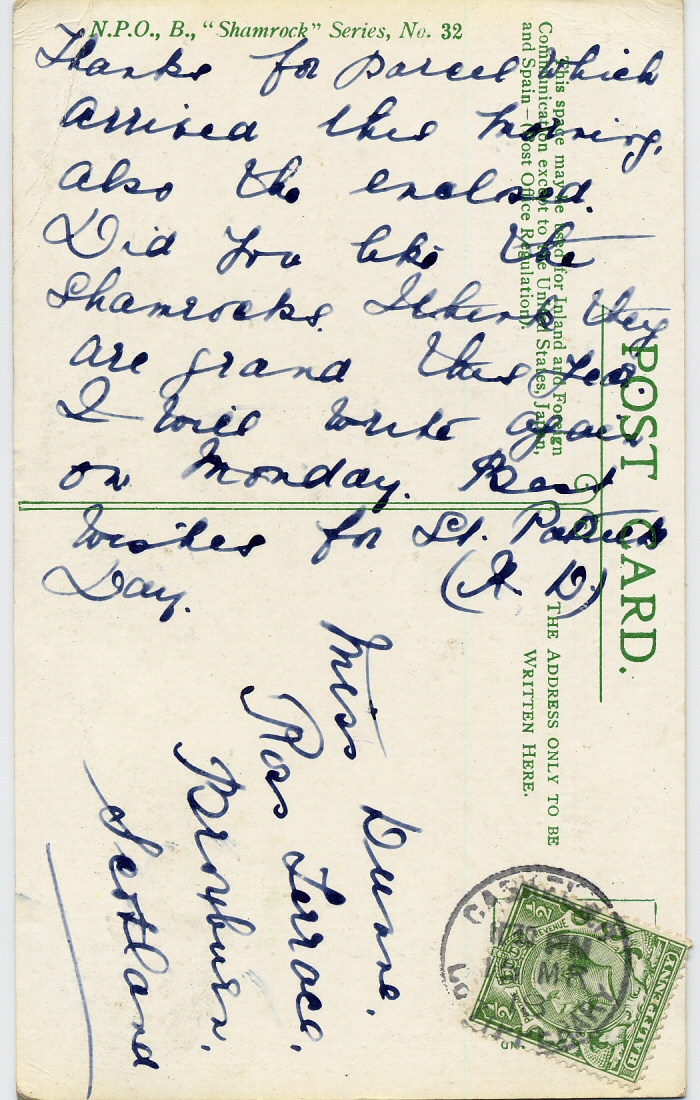 N.P.O., B., “Shamrock” Series, No. 32
Thanks for parcel which
arrived this morning,
also the enclosed.
Did you like the
Shamrocks. I think they
are grand this year
I will write again
on Monday. Best
Wishes for St. Patrick
Day. (A. D)
This space may be used for Inland and Foreign
Communication except to the United States, Japan,
and Spain—(Post Office Regulation).
POST CARD.
THE ADDRESS ONLY TO BE
WRITTEN HERE.
Miss Dunne,
Ross Terrace,
Broxburn,
Scotland
HALFPENNY
REVENUE
½
½
PM
MR